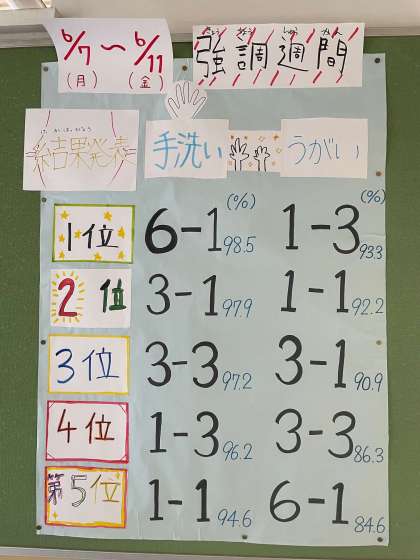 6/7～6/11
(月) (金)
きょう ちょう しゅう かん
強調週間
けっかはっぴょう
結果発表
手洗い うがい
(%) (%)
1位 6-1 98.5 1-3 93.3
2位 3-1 97.9 1-1 92.2
3位 3-3 97.2 3-1 90.9
4位 1-3 96.2 3-3 86.3
第5位 1-1 94.6 6-1 84.6